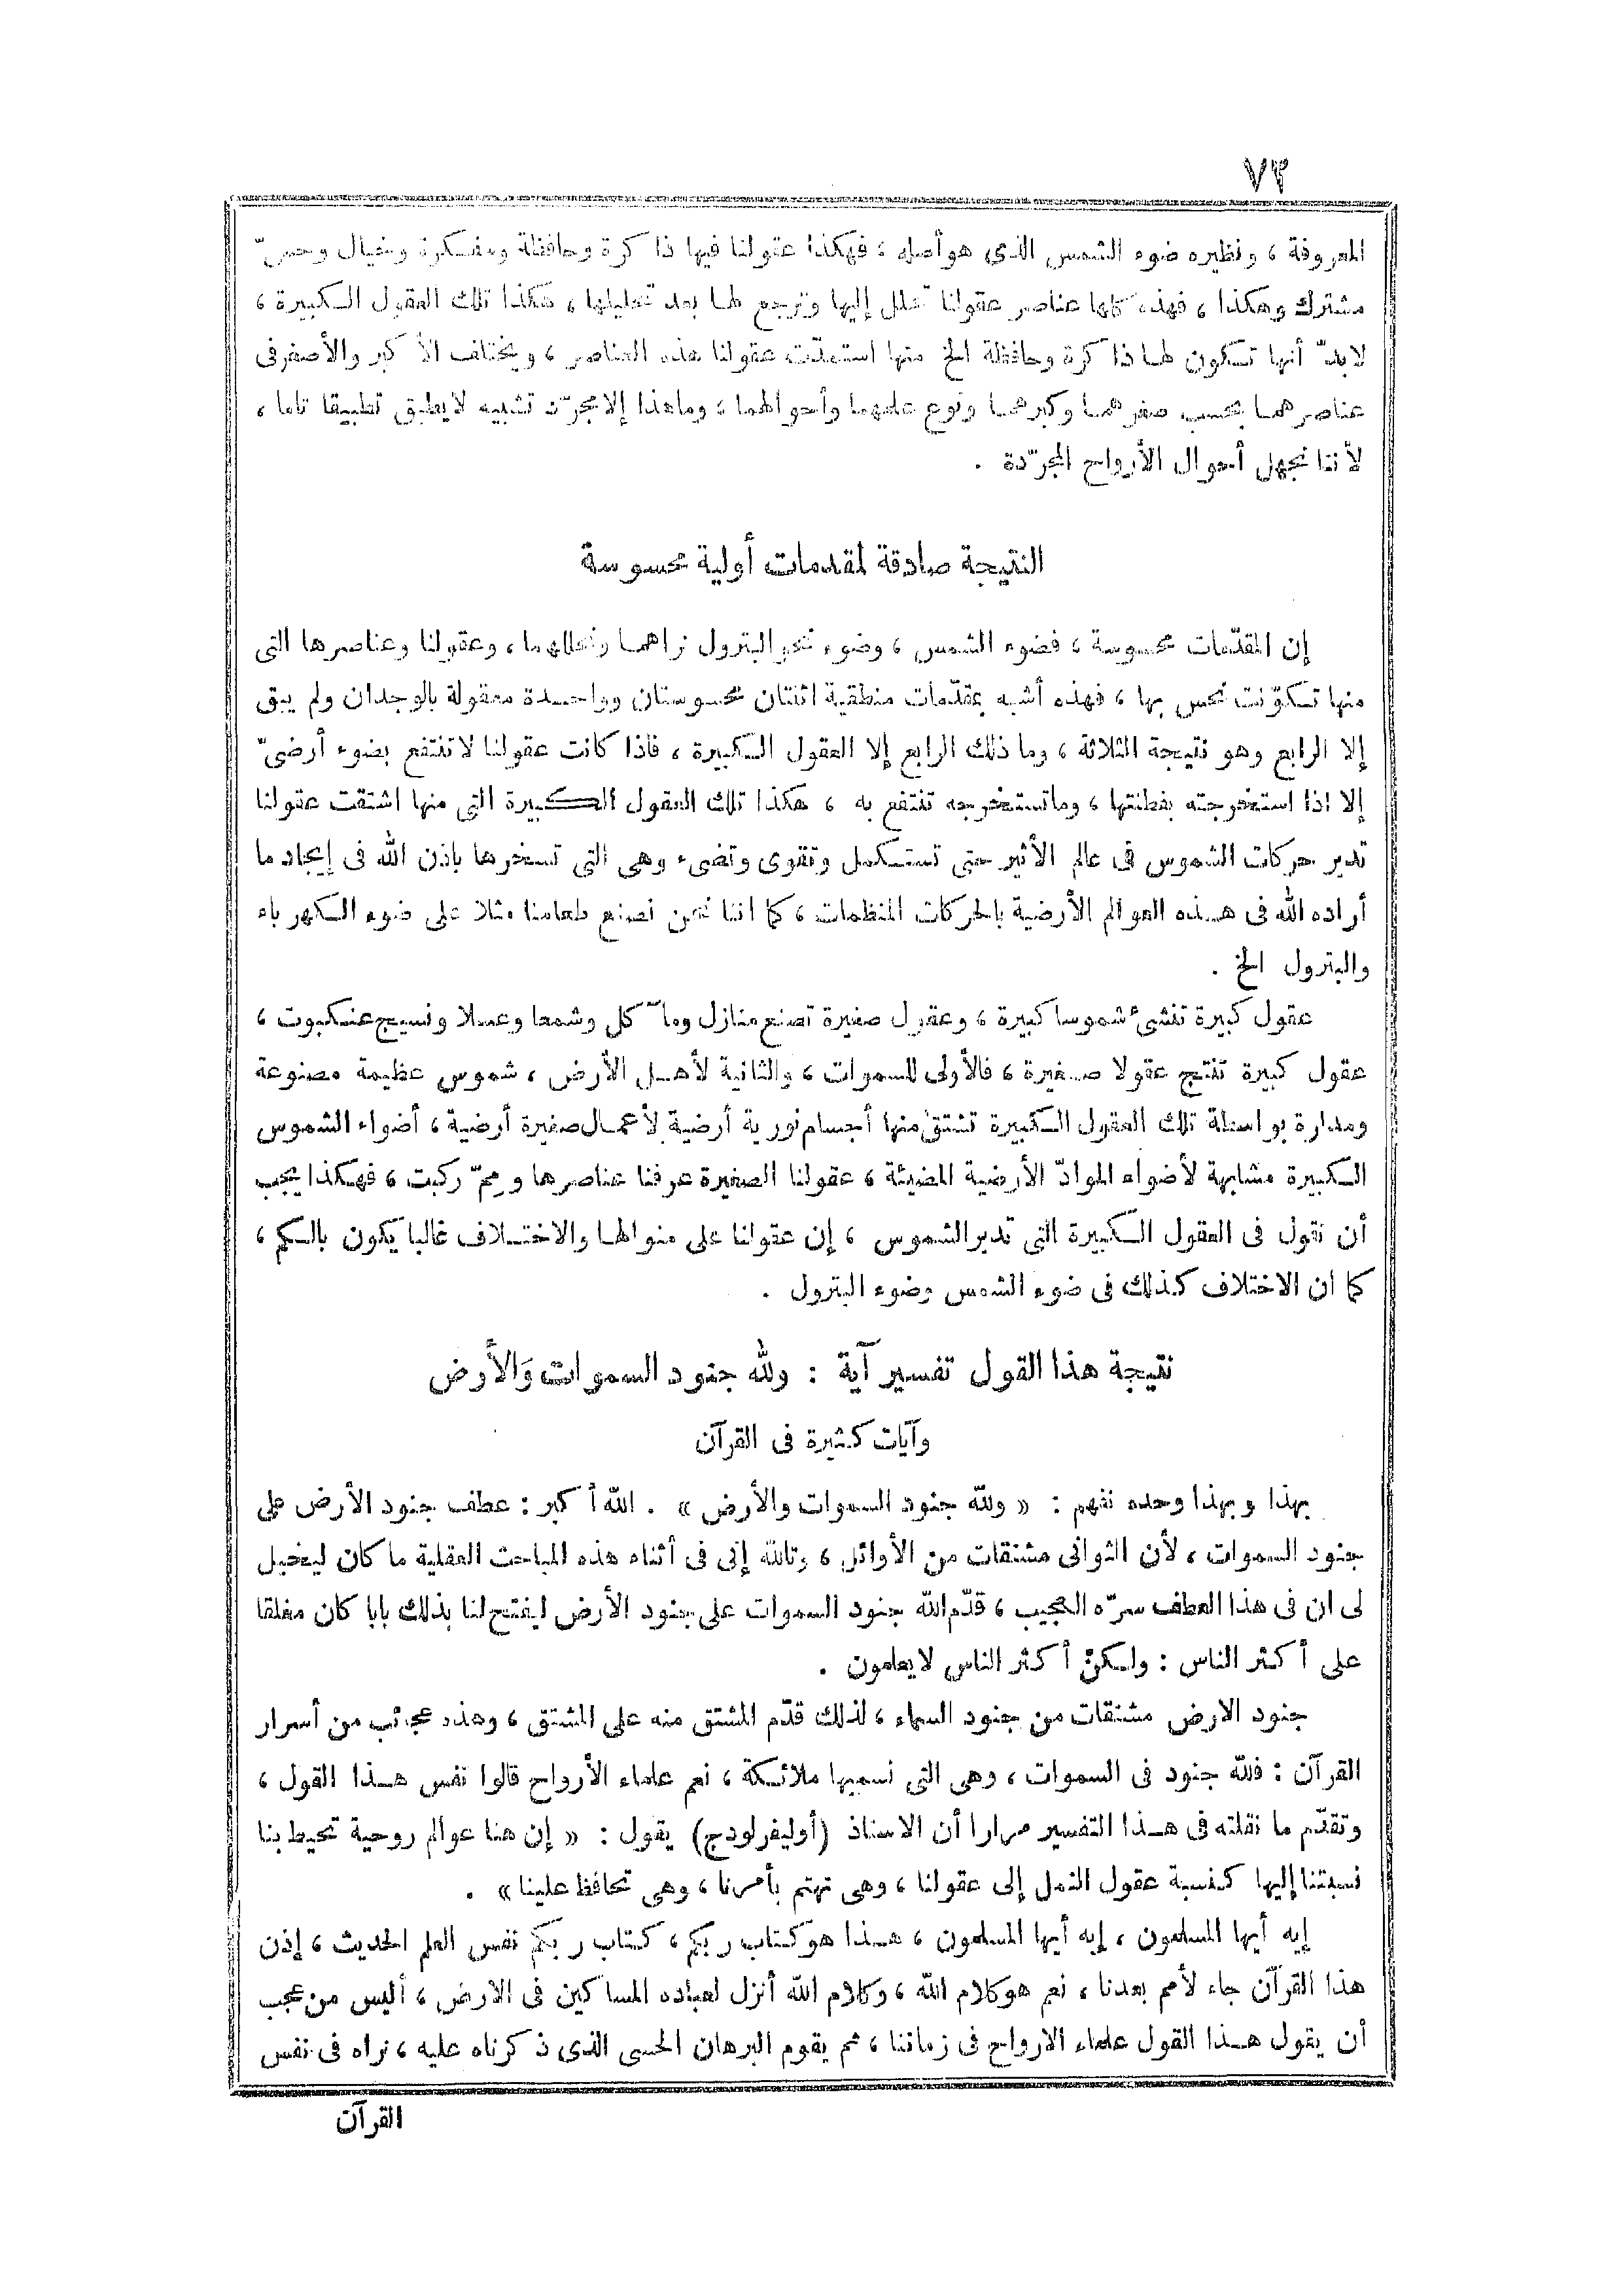 ٧٢
المعروفة ، ونظيره ضوء الشمس الذى هو أصله ، فهكذا عقولنا فيها ذا كرة وحافظة ومفكرة وخيال وحسّ
مشترك وهكذا ، فهذه كلها عناصر عقولنا تحلل إليها وترجع لها بعد تحليلها ، هكذا تلك العقول الكبيرة ،
لابدّ أنها تكون لها ذا كرة وحافظة الخ منها استمدّت عقولنا هذه العناصر ، ويختلف الأكبر والأصغر فى
عناصرهما بحسب صغرهما وكبرهما ونوع علمهما وأحوالهما ، وماهذا إلا مجرّد تشبيه لايطبق تطبيقا تاما ،
لأننا نجهل أحوال الأرواح المجرّدة .
النتيجة صادقة لمقدمات أولية محسوسة
إن المقدّمات محسوسة ، فضوء الشمس ، وضوء نحو البترول نراهما ونحللهما ، وعقولنا وعناصرها التى
منها تكوّنت نحس بها ، فهذه أشبه بمقدّمات منطقية اثنتان محسوستان وواحدة معقولة بالوجدان ولم يبق
إلا الرابع وهو نتيجة الثلاثة ، وما ذلك الرابع إلا العقول الكبيرة ، فاذا كانت عقولنا لاتنتفع بضوء أرضىّ
إلا اذا استخرجته بفطنتها ، وماتستخرجه تنتفع به ، هكذا تلك العقول الكبيرة التى منها اشتقت عقولنا
تدير حركات الشموس فى عالم الأثير حتى تستكمل وتقوى وتضىء وهى التى تسخرها باذن الله فى إيجاد ما
أراده الله فى هذه العوالم الأرضية بالحركات المنظمات ، كما اننا نحن نصنع طعامنا مثلا على ضوء الكهرباء
والبترول الخ .
عقول كبيرة تنشىء شموسا كبيرة ، وعقول صغيرة تصنع منازل ومآ كل وشمعا وعسلا ونسيج عنكبوت ،
عقول كبيرة تنتج عقولا صغيرة ، فالأولى للسموات ، والثانية لأهل الأرض ، شموس عظيمة مصنوعة
ومدارة بواسطة تلك العقول الكبيرة تشتق منها أجسام نورية أرضية لأعمال صغيرة أرضية ، أضواء الشموس
الكبيرة مشابهة لأضواء الموادّ الأرضية المضيئة ، عقولنا الصغيرة عرفنا عناصرها وممّ ركبت ، فهكذا يجب
أن نقول فى العقول الكبيرة التى تدير الشموس ، إن عقولنا على منوالها والاختلاف غالبا يكون بالكم ،
كما ان الاختلاف كذلك فى ضوء الشمس وضوء البترول .
نتيجة هذا القول تفسير آية : ولله جنود السموات وَالأرض
وآيات كثيرة فى القرآن
بهذا وبهذا وحده نفهم : « ولله جنود السموات والأرض » . الله أ كبر : عطف جنود الأرض على
جنود السموات ، لأن الثوانى مشتقات من الأوائل ، وتالله إنى فى أثناء هذه المباحث العقلية ما كان ليخيل
لى ان فى هذا العطف سرّه العجيب ، قدّم الله جنود السموات على جنود الأرض ليفتح لنا بذلك بابا كان مغلقا
على أ كثر الناس : ولكنّ أ كثر الناس لايعلمون .
جنود الارض مشتقات من جنود السماء ، لذلك قدّم المشتق منه على المشتق ، وهذه عجائب من أسرار
القرآن : فلله جنود فى السموات ، وهى التى نسميها ملائكة ، نعم علماء الأرواح قالوا نفس هذا القول ،
وتقدّم ما نقلته فى هذا التفسير مرارا أن الاستاذ (أوليفرلودج) يقول : « إن هنا عوالم روحية تحيط بنا
نسبتنا إليها كنسبة عقول النمل إلى عقولنا ، وهى تهتم بأمرنا ، وهى تحافظ علينا » .
إيه أيها المسلمون ، إيه أيها المسلمون ، هذا هو كتاب ربكم ، كتاب ربكم نفس العلم الحديث ، إذن
هذا القرآن جاء لأمم بعدنا ، نعم هو كلام الله ، وكلام الله أنزل لعباده المساكين فى الارض ، أليس من عجب
أن يقول هذا القول علماء الارواح فى زماننا ، ثم يقوم البرهان الحسى الذى ذ كرناه عليه ، نراه فى نفس
القرآن